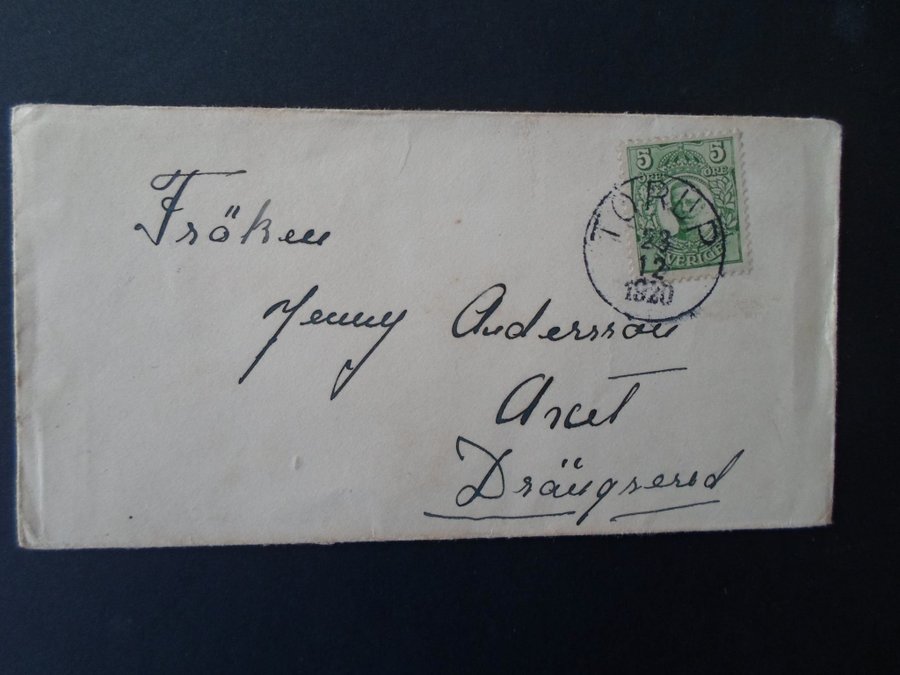 5 5
ÖRE ÖRE
SVERIGE
TORUP
23
12
1920
Fröken
Jenny Andersson
Aret
Drängsered